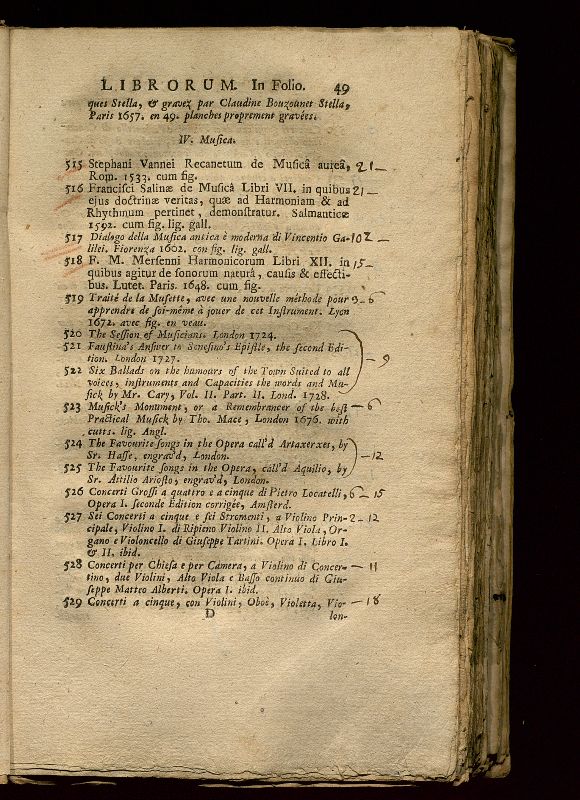 LIBRORUM. In Folio. 49
ques Stella, & gravez par Claudine Bouzounet Stella,
Paris 1657. en 49. planches proprement gravées.
IV. Musica.
515 Stephani Vannei Recanetum de Musicâ aureâ, 21 —
Rom. 1533. cum fig.
516 Francisci Salinæ de Musicâ Libri VII. in quibus 21 —
ejus doctrinæ veritas, quæ ad Harmoniam & ad
Rhythmum pertinet, demonstratur. Salmanticæ
1592. cum fig. lig. gall.
517 Dialogo della Musica antica è moderna di Vincentio Ga-
lilei. Fiorenza 1602. con fig. lig. gall.
518 F. M. Mersenni Harmonicorum Libri XII. in 15 —
quibus agitur de sonorum naturâ, causis & effecti-
bus. Lutet. Paris. 1648. cum fig.
519 Traité de la Musette, avec une nouvelle méthode pour 9 - 6
apprendre de soi-même à jouer de cet Instrument. Lyon
1672. avec fig. en veau.
520 The Session of Musicians. London 1724.
521 Faustina's Answer to Senesino's Epistle, the second Edi-
tion. London 1727. — 9
522 Six Ballads on the humours of the Town Suited to all
voices, instruments and Capacities the words and Mu-
sick by Mr. Cary, Vol. II. Part. II. Lond. 1728.
523 Musick's Monument, or a Remembrancer of the best — 6
Practical Musick by Tho. Mace, London 1676. with
cutts. lig. Angl.
524 The Favourite songs in the Opera call'd Artaxerxes, by
Sr. Hasse, engrav'd, London. — 12
525 The Favourite songs in the Opera, call'd Aquilio, by
Sr. Attilio Ariosto, engrav'd, London.
526 Concerti Grossi a quattro e a cinque di Pietro Locatelli, 6 - 15
Opera I. seconde Edition corrigée, Amsterd.
527 Sei Concerti a cinque e sei Stromenti, a Violino Prin- 2 - 12
cipale, Violino I. di Ripieno Violino II. Alto Viola, Or-
gano e Violoncello di Giuseppe Tartini. Opera I. Libro I.
& II. ibid.
528 Concerti per Chiesa e per Camera, a Violino di Concer- — 11
tino, due Violini, Alto Viola e Basso continuo di Giu-
seppe Matteo Alberti. Opera I. ibid.
529 Concerti a cinque, con Violini, Oboè, Violetta, Vio- — 18
D lon-